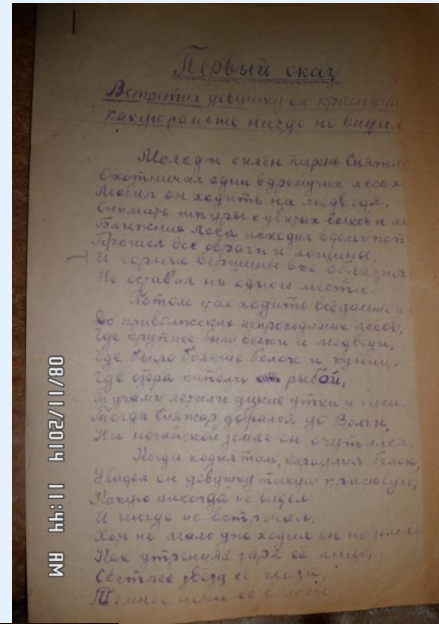 Первый сказ
Встретил девушку он красивую
какую раньше нигде не видел
Молод и силён парнь Сияжар
Охотничал один в дремучих лесах
Любил он ходить на медведя,
Снимать шкуры с убитых волков и
Ближние леса исходил вдоль и поп
Прошёл все овраги и лощины,
И горные вершины все облазил
Не оставил ни одного места
Потом стал ходить всё дальше и
До приволжских непроходимых лесов,
Где крупнее были волки и медведи,
Где было больше белок и куниц,
Где озёра кипели рыбой,
Тучами летали дикие утки и гуси.
Тогда Сияжар добрался до Волги,
На ногайской земле он очутился.
Когда ходил там, караулил белок,
Увидел он девушку такую красивую,
Какую никогда не видел
И нигде не встречал.
Хоть не мало уже ходил он по земле
Как утренняя заря её лицо,
Светлее звёзд её глаза,
Темнее ночи её волосы
08/11/2014 11:44 AM